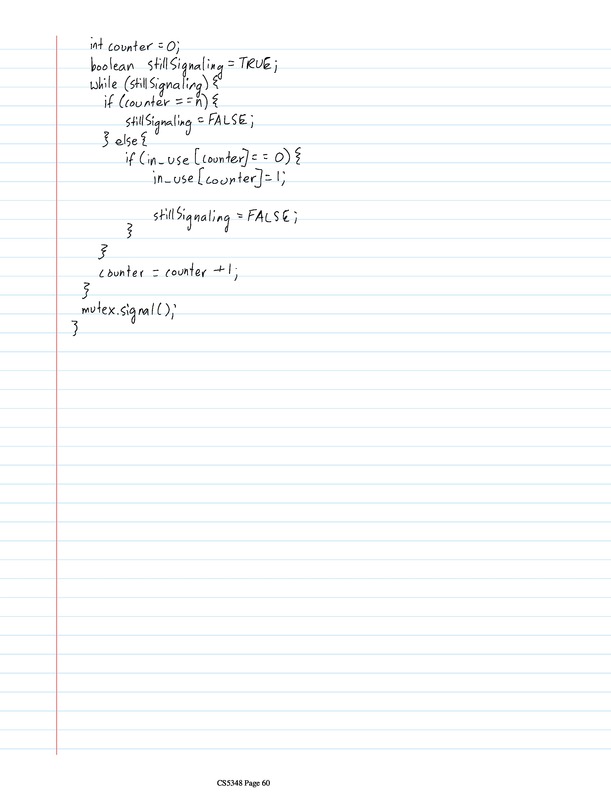 int counter = 0;
boolean stillSignaling = TRUE;
while (stillSignaling) {
if (counter == n) {
stillSignaling = FALSE;
} else {
if (in_use [counter] == 0) {
in_use [counter] = 1;
stillSignaling = FALSE;
}
}
counter = counter + 1;
}
mutex.signal();
}
CS5348 Page 60